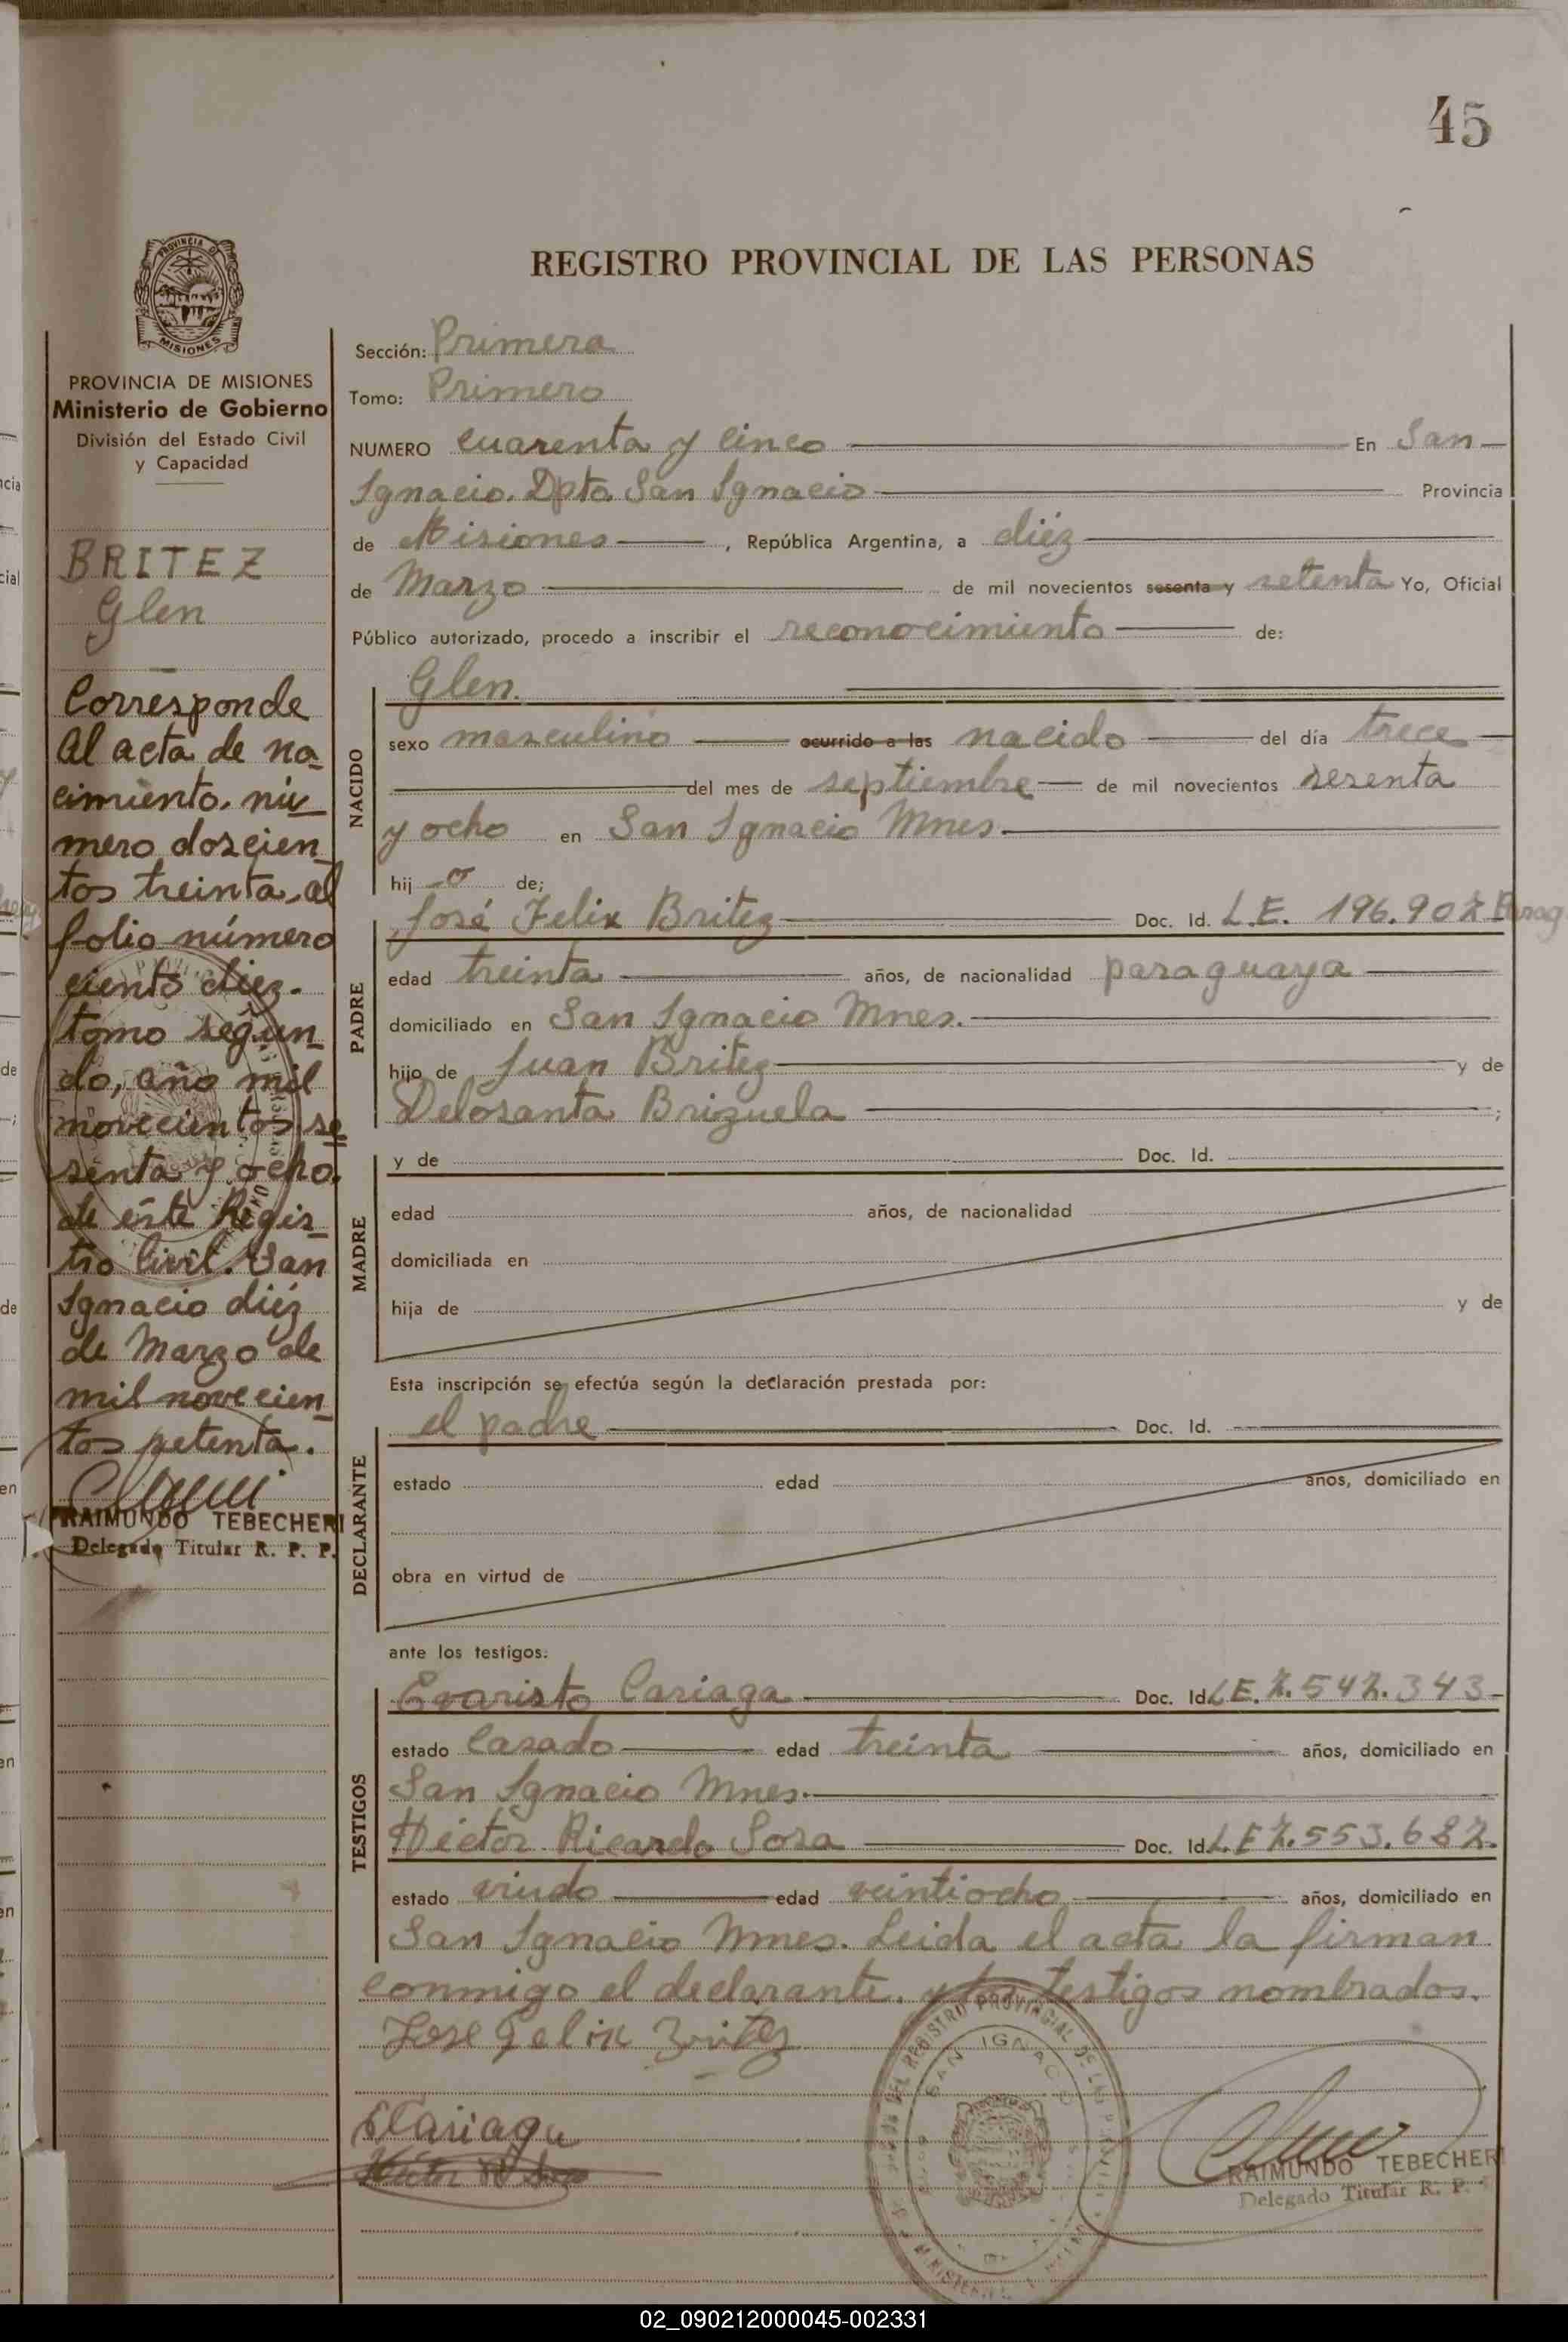 45
REGISTRO PROVINCIAL DE LAS PERSONAS
PROVINCIA DE
MISIONES
PROVINCIA DE MISIONES
Ministerio de Gobierno
División del Estado Civil
y Capacidad
BRITEZ
Glen
Corresponde
al acta de na
cimiento. nú
mero doscien
tos treinta, al
folio número
ciento diez.
tomo segun
do, año mil
novecientos se
senta y ocho.
de este Regis
tro Civil. San
Ignacio diéz
de Marzo de
mil novecien
tos setenta.
RAIMUNDO TEBECHERI
Delegado Titular R. P. P.
Sección: Primera
Tomo: Primero
NUMERO cuarenta y cinco En San
Ignacio. Dpto. San Ignacio Provincia
de Misiones, República Argentina, a diéz
de Marzo de mil novecientos sesenta y setenta Yo, Oficial
Público autorizado, procedo a inscribir el reconocimiento de:
NACIDO
Glen.
sexo masculino ocurrido a las nacido del día trece
del mes de septiembre de mil novecientos sesenta
y ocho en San Ignacio Mnes.
hij o de;
PADRE
José Felix Britez Doc. Id. L.E. 196.902 Parag
edad treinta años, de nacionalidad paraguaya
domiciliado en San Ignacio Mnes.
hijo de Juan Britez y de
Delosanta Brizuela ;
MADRE
y de Doc. Id.
edad años, de nacionalidad
domiciliada en
hija de y de
Esta inscripción se efectúa según la declaración prestada por:
DECLARANTE
el padre Doc. Id.
estado edad años, domiciliado en
obra en virtud de
ante los testigos:
TESTIGOS
Evaristo Cariaga Doc. Id. L.E. 7.542.343
estado Casado edad treinta años, domiciliado en
San Ignacio Mnes.
Héctor Ricardo Sosa Doc. Id. L.E 7.553.682.
estado viudo edad veintiocho años, domiciliado en
San Ignacio Mnes. Leida el acta la firman
conmigo el declarante. y los testigos nombrados.
Jose Felix Britez
ECariaga
SAN IGNACIO
RAIMUNDO TEBECHERI
Delegado Titular R. P.
02_090212000045-002331